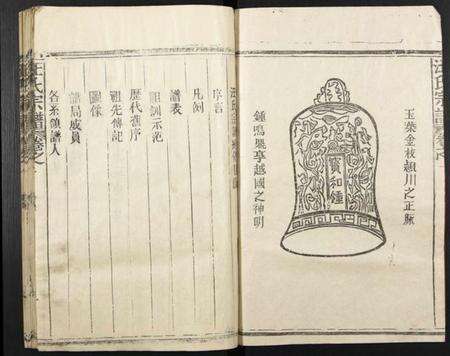 玉葉金枝潁川之正脈
寳和鐘
鍾鳴鳳亭越國之神明
汪氏宗譜
序言
凡例
譜表
祖訓示范
歷代舊序
祖先傳記
圖像
譜局成員
各系領譜人
汪氏宗譜